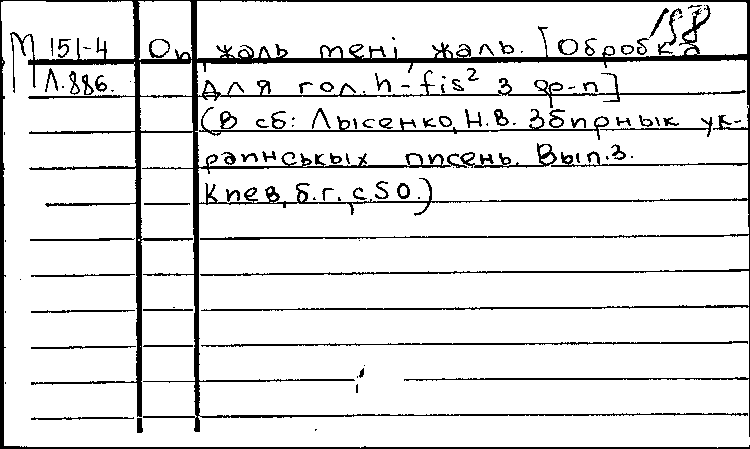 158
М 151-4 Ой, жаль мені, жаль. [Обробка
Л.886. для гол. h-fis² з ф-п]
(В сб: Лысенко, Н.В. Збирнык ук-
раинськых писень. Вып.3.
Киев, б.г., с.50.)